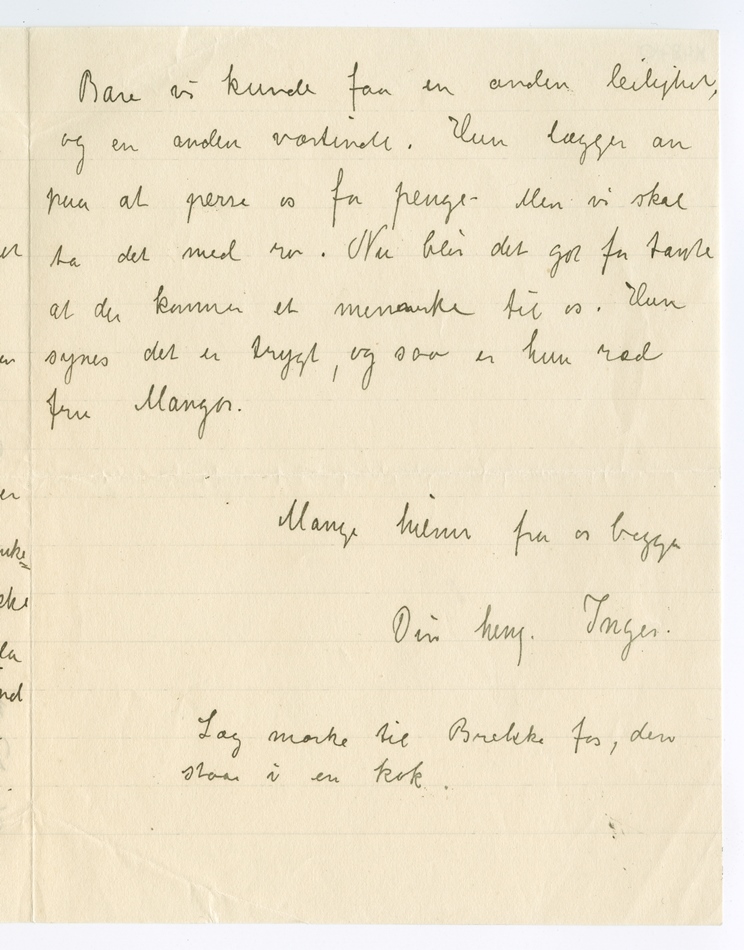 Bare vi kunde faa en anden leilighet,
og en anden værtinde. Hun lægger an
paa at perse os for penge. Men vi skal
ta det med ro. Nu blir det got for tante
at der kommer et menneske til os. Hun
synes det er trygt, og saa er hun ræd
fru Mangor.
Mange hilsner fra os begge
Din heng. Inger.
Læg mærke til Brekke fos, den
staar i en kok.